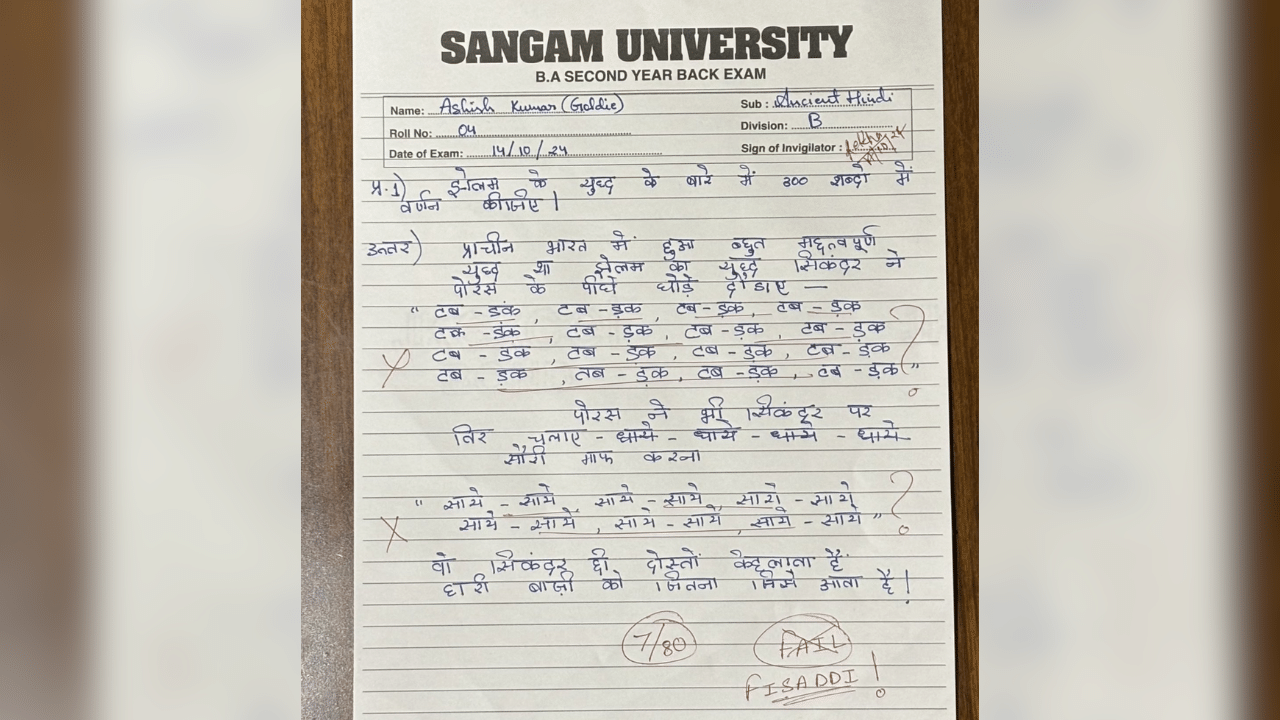 SANGAM UNIVERSITY
B.A SECOND YEAR BACK EXAM
Name: Ashish Kumar (Goldie)
Sub : Ancient Hindi
Roll No: 04
Division: B
Date of Exam: 14/10/24
Sign of Invigilator :
प्र.1) झेलम के युध्द के बारे में 300 शब्दो में
वर्णन कीजिए |
उत्तर) प्राचीन भारत में हुआ बहुत महत्वपूर्ण
युध्द था झेलम का युध्द सिकंदर ने
पोरस के पीछे घोड़े दोडाए —
" टब - ड़क , टब - ड़क , टब - ड़क , टब - ड़क
टक - ड़क , टब - ड़क , टब - ड़क , टब - ड़क
टब - ड़क , टब - ड़क , टब - ड़क , टब - ड़क
टब - ड़क , तब - ड़क , टब - ड़क , टब - ड़क "
?
X
पोरस ने भी सिकंदर पर
तिर चलाए - धाये - धाये - धाये - धाये
सौरी माफ करना
" साये - साये साये - साये, साये - साये
साये - साये , साये - साये, साये - साये "
?
X
वो सिकंदर ही दोस्तों केहलाता है
हारी बाज़ी को जितना जिसे आता है !
7/80
FAIL
FISADDI !